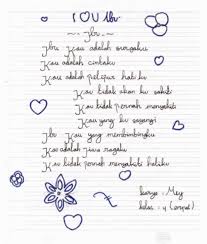 I O U Ibu
~ Ibu ~
Ibu Kau adalah surgaku
Kau adalah cintaku
Kau adalah pelipur hatiku
Kau tidak akan ku sakiti
Kau tidak pernah menyakiti
Kau yang ku sayangi
Ibu Kau yang membimbingku
Kau adalah jiwa ragaku
Kau tidak pernah menyakiti hatiku
karya : Mey
kelas : 4 (empat)